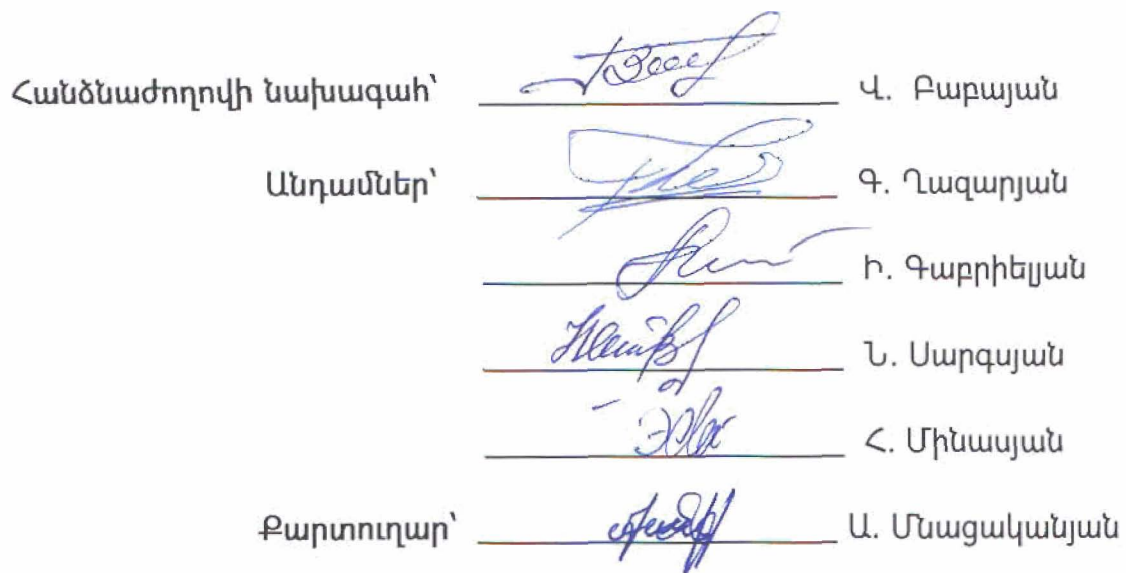 Հանձնաժողովի նախագահ՝ Վ. Բաբայան
Անդամներ՝ Գ. Ղազարյան
Ի. Գաբրիելյան
Ն. Սարգսյան
Հ. Մինասյան
Քարտուղար՝ Ա. Մնացականյան